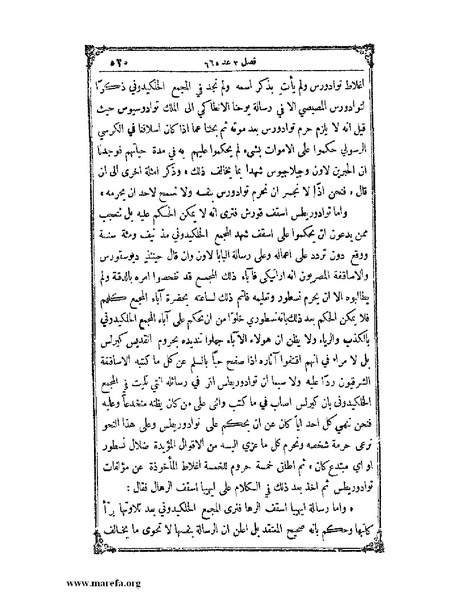 فصل ٣ عد ٦٦٥ ٥٢٥
اغلاط توادورس ولم يأت بذكر اسمه ولم نجد في المجمع الخلكيدوني ذكرًا
لتوادورس المصيصي الا في رسالة يوحنا الانطاكي الى الملك توادوسيوس حيث
قيل انه لا يلزم حرم توادورس بعد موته ثم بحثنا عما اذا كان اسلافنا في الكرسي
الرسولي حكموا على الاموات بشيء لم يحكموا عليهم به في مدة حياتهم فوجدنا
ان الحبرين لاون وجيلاجيوس شهدا بما يخالف ذلك ، وذكر امثلة اخرى الى ان
قال ، فنحن اذًا لا نجسر ان نحرم توادورس بنفسه ولا نسمح لاحد ان يحرمه ،
واما توادوريطس اسقف قورش فنرى انه لا يمكن الحكم عليه بل نتعجب
ممن يدعون ان يحكموا على اسقف شهد المجمع الخلكيدوني مذ نيف ومئة سنة
ووقع دون تردد على اعماله وعلى رسالة البابا لاون وان قال حينئذٍ ديوسقورس
والاساقفة المصريون انه اراتيكي فآباء ذلك المجمع قد تفحصوا امره بالدقة ولم
يطالبوه الا ان يحرم نسطور وتعليمه فاتم ذلك لساعته بحضرة آباء المجمع كلهم
فلا يمكن الحكم بعد ذلك بانه نسطوري خلوًا من ان يحكم على آباء المجمع الخلكيدوني
بالكذب والرياء ولا يظن ان هولاء الآباء جهلوا تنديده بحروم القديس كيرلس
بل لا مراء في انهم اقتفوا آثاره اذا صفح حبًا بالسلم عن كل ما كتبه الاساقفة
الشرقيون ردًا عليه ولا سيما ان توادوريطس اقر في رسائله التي تليت في المجمع
الخلكيدوني بان كيرلس اصاب في ما كتب واثنى على من كان يظنه منخدعًا وعليه
فنحن ننهي كل احد ايًا كان عن ان يحكم على توادوريطس وعلى هذا النحو
نرعى حرمة شخصه ونحرم كل ما عزي اليه من الاقوال المؤيدة ضلال نسطور
او اي مبتدع كان ، ثم اطلق خمسة حروم للخمسة اغلاط المأخوذة عن مؤلفات
توادوريطس ثم اخذ بعد ذلك في الكلام على ايهيبا اسقف الرها فقال :
، واما رسالة ايهيبا اسقف الرها فنرى المجمع الخلكيدوني بعد تلاوتها برّأ
كاتبها وحكم بانه صحيح المعتقد بل اعلن ان الرسالة بنفسها لا تحوي ما يخالف
www.marefa.org